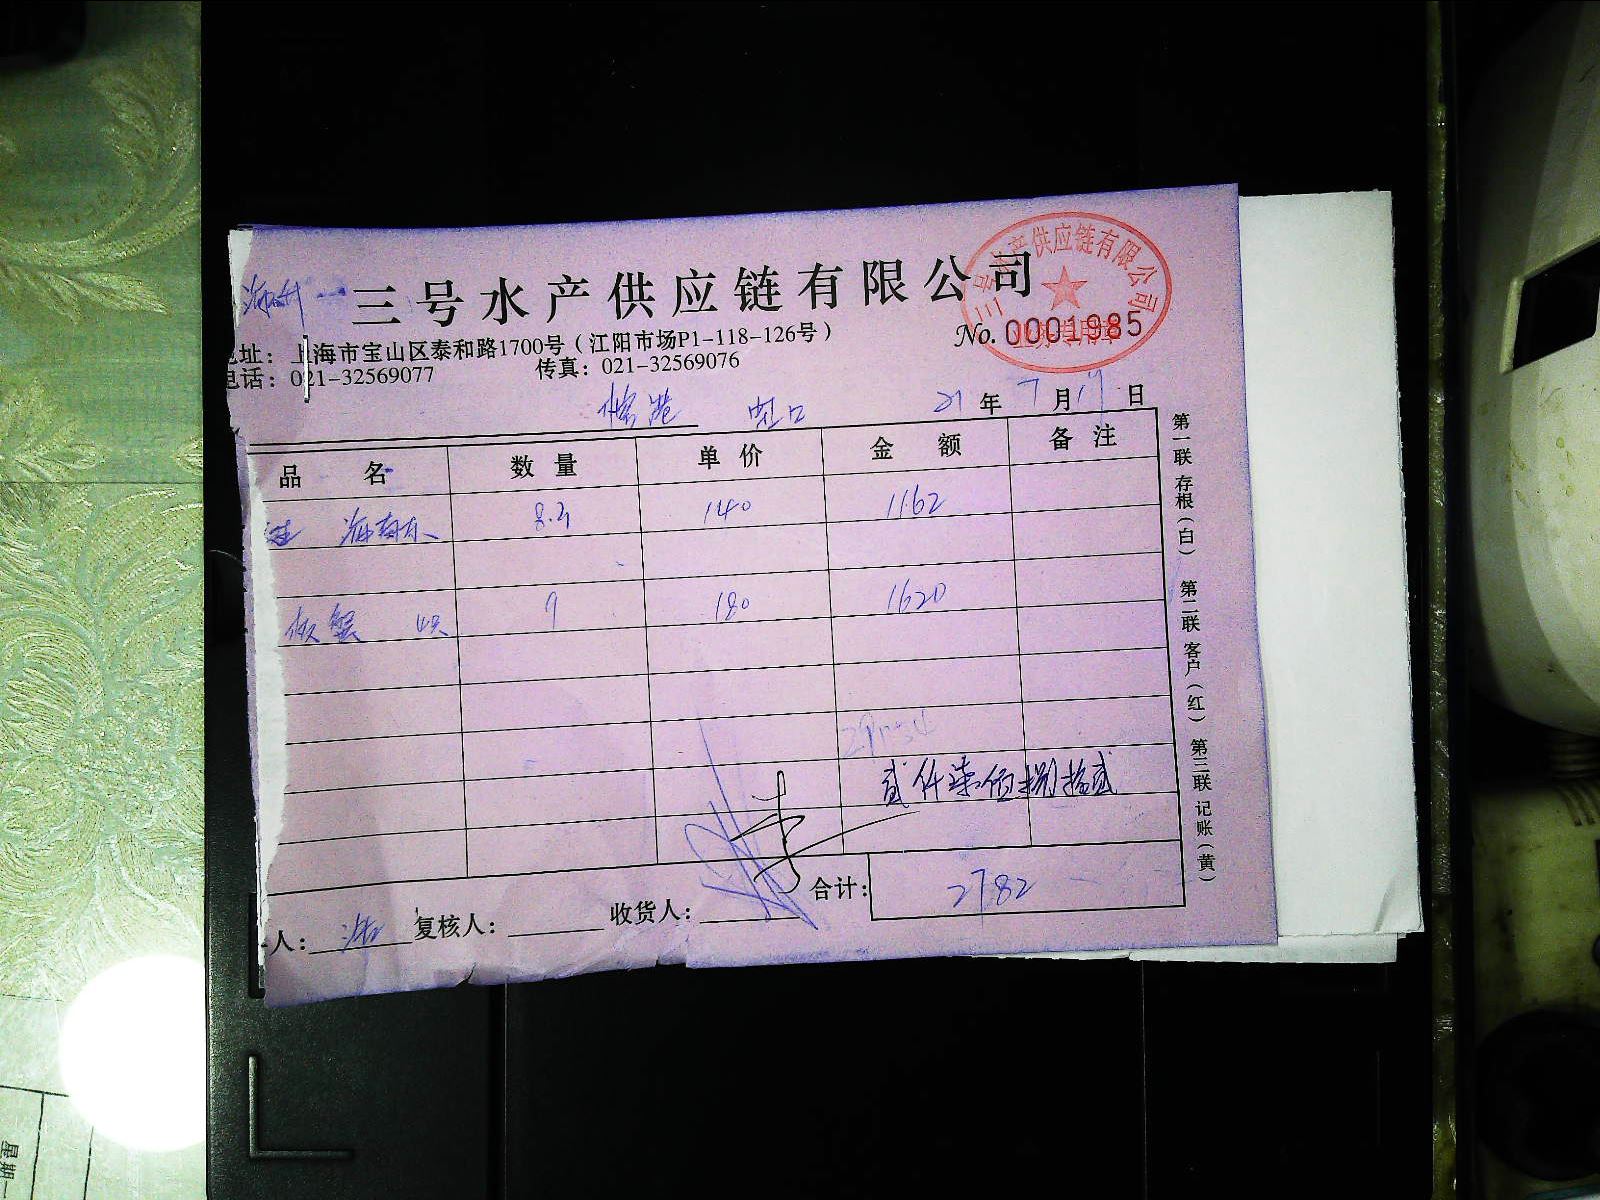 三号水产供应链有限公司
三号水产供应链有限公司
No. 0001985
地址：上海市宝山区泰和路1700号（江阳市场P1-118-126号）
电话：021-32569077 传真：021-32569076
临港 虹口 21年7月17日
品名 数量 单价 金额 备注
海南东 8.3 140 1162
板蟹 4只 9 180 1620
贰仟柒佰捌拾贰
合计： 2782
人： 复核人： 收货人：
第一联 存根（白） 第二联 客户（红） 第三联 记账（黄）
星期一